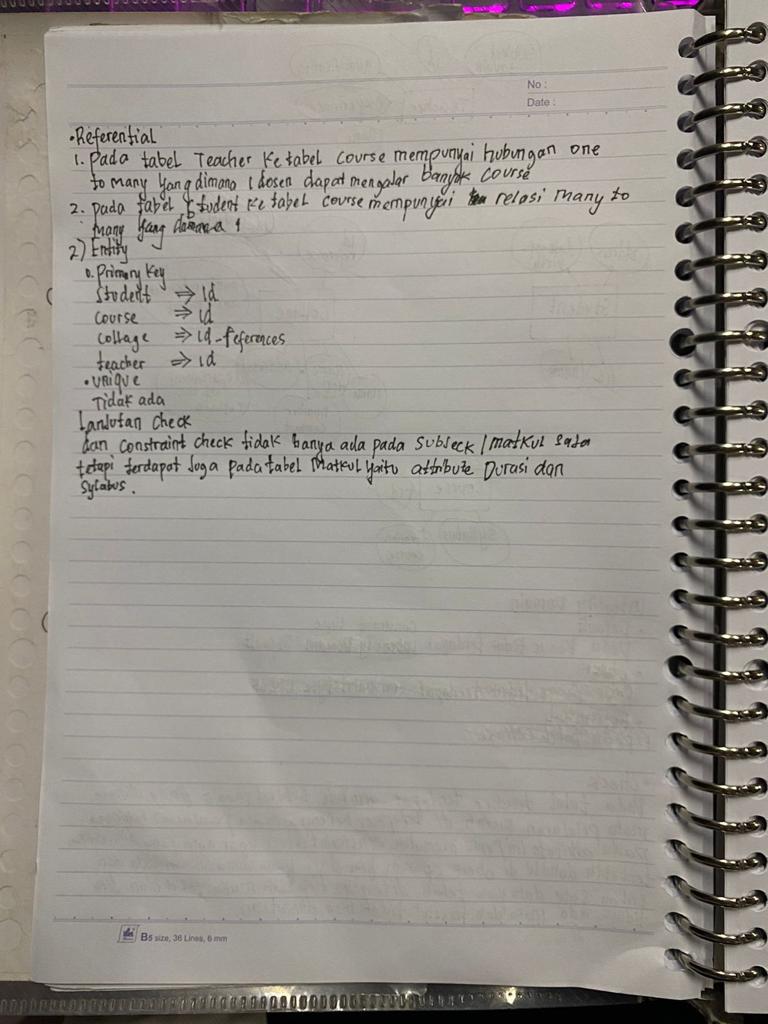 No :
Date :
• Referential
1. Pada tabel Teacher ke tabel course mempunyai hubungan one
to many yang dimana 1 dosen dapat mengajar banyak course
2. pada tabel student ke tabel course mempunyai relasi many to
many yang dimana 1
2) Entity
o. Primary Key
Student ⇒ id
course ⇒ id
collage ⇒ id-feferences
teacher ⇒ id
• unique
Tidak ada
Lanjutan check
dan constraint check tidak hanya ada pada subjeck / matkul saja
tetapi terdapat Juga pada tabel Matkul yaitu attribute Durasi dan
Sylabus.
B5 size, 36 Lines, 6 mm